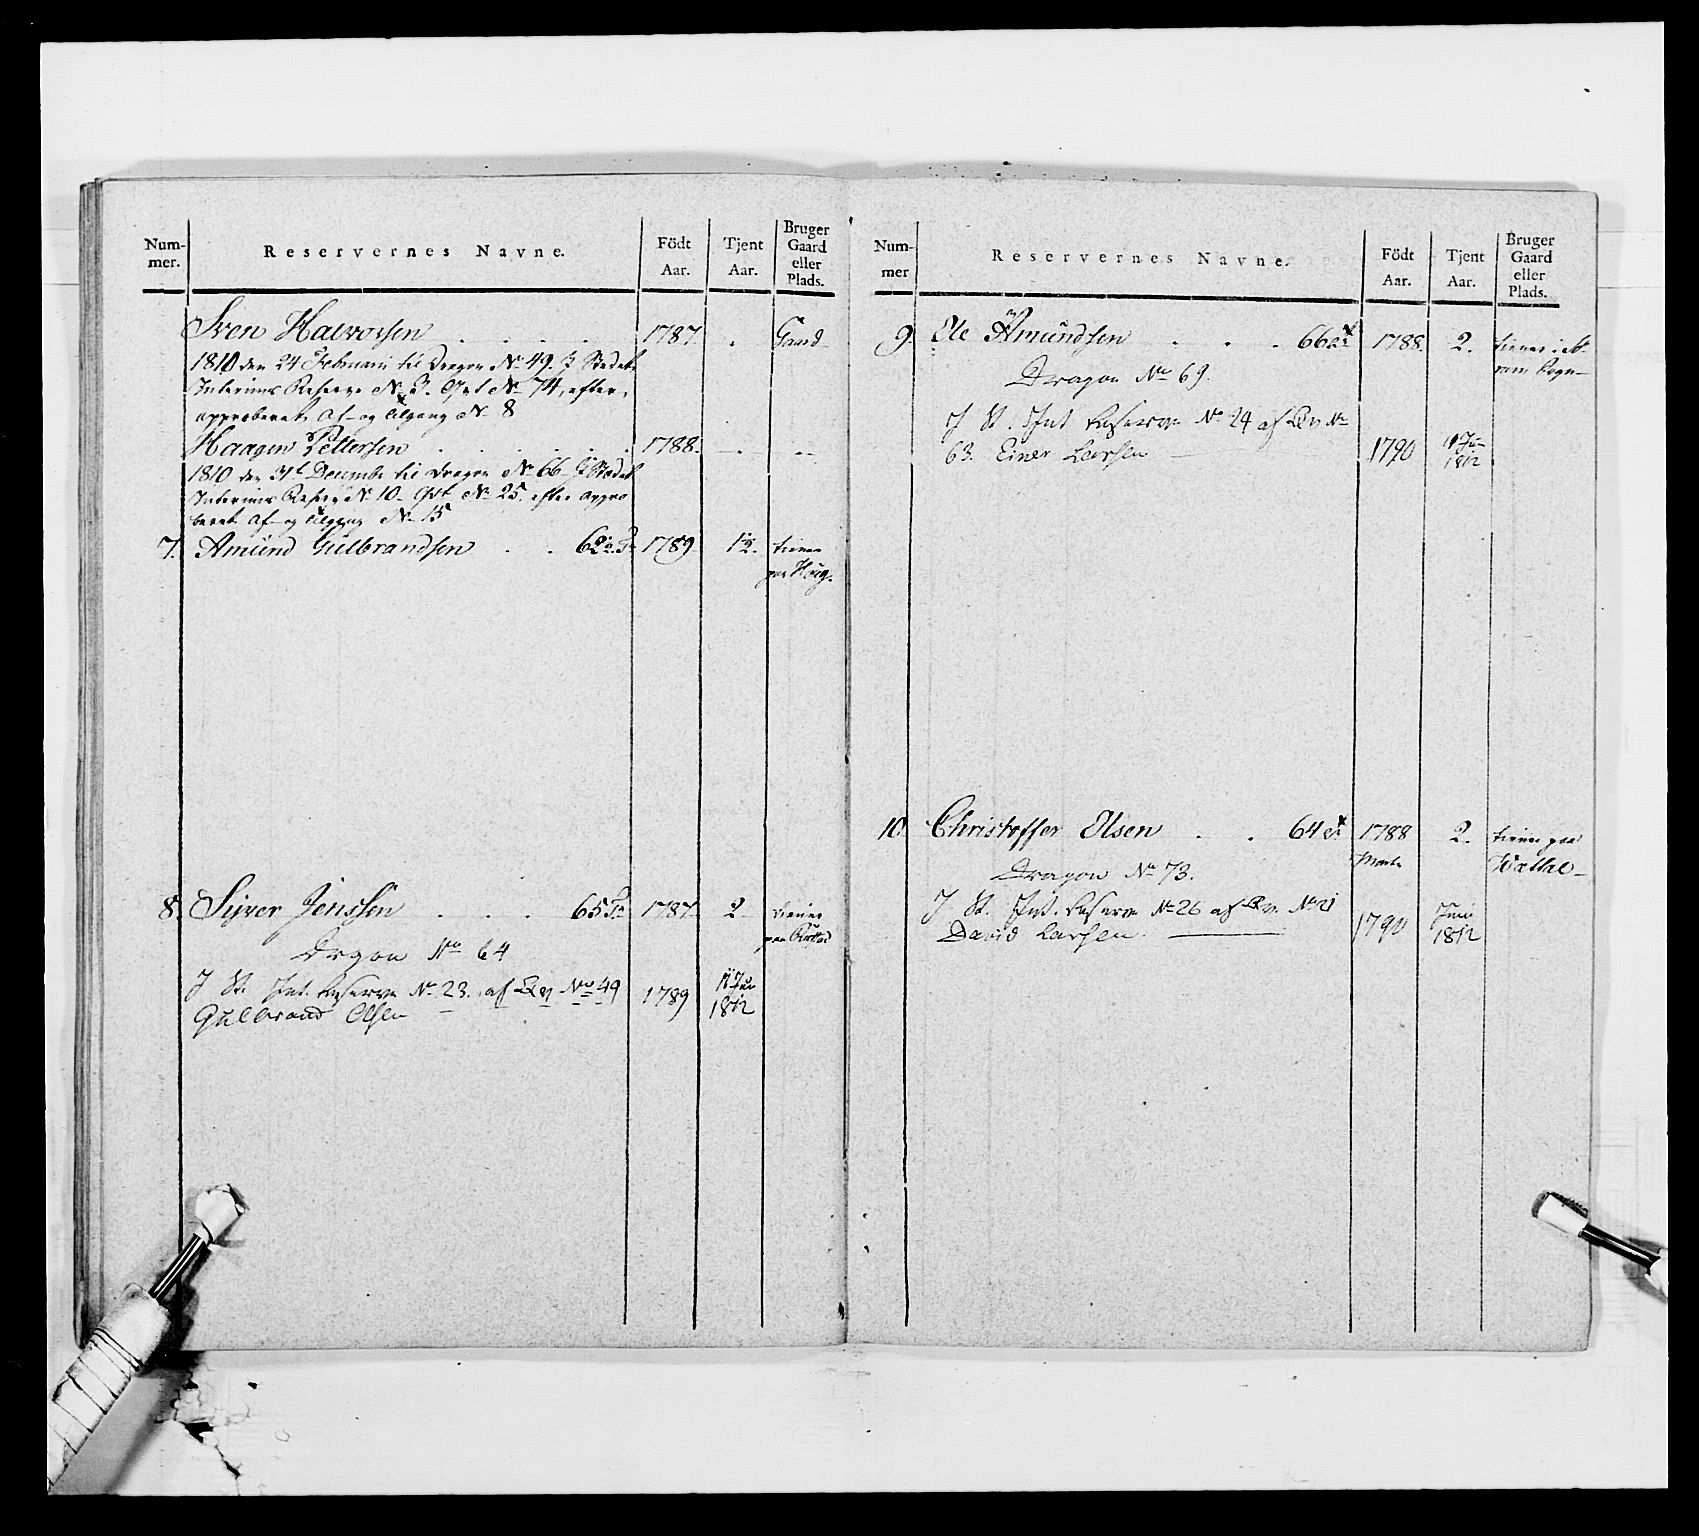 Num-
mer.
Reservernes Navne.
Födt
Aar.
Tjent
Aar.
Bruger
Gaard
eller
Plads.
Sven Halvorsen 1787. Gaard-
1810 den 24 Februarii til Dragon No 49. I Stedet
Interims Reserve No 3. Qvt No 74, efter
approberet Af- og Tilgang No 8
Haagen Pettersen 1788.
1810 den 31t Decembr til Dragon No 66. I Stedet
Interims Reserve No 10 Qvt No 25. efter appro
beret Af- og Tilgang No 15
7. Amünd Gülbrandsen 62 1789 1½. tiener
paa Houg.
8. Siver Jenssen 65 1787. 2. tiener
paa
Dragon No 64
I St. Int. Reserve No 23. af Qv No 49
Gulbrand Olsen 1789
1812
Num-
mer
Reservernes Navne.
Födt
Aar.
Tjent
Aar.
Bruger
Gaard
eller
Plads.
9. Ole Amündsen 66 1788. 2. tiener i
Sogn
Dragon No 69.
I St. Int Reserve No 24 af Qv No
63. Einer Larsen 1790
1812
10. Christoffer Olsen 64 1788 2. tiener paa
Dragon No 73.
I St. Int. Reserve No 26 af Qv. No 21
David Larsen. 1790 Juni
1812